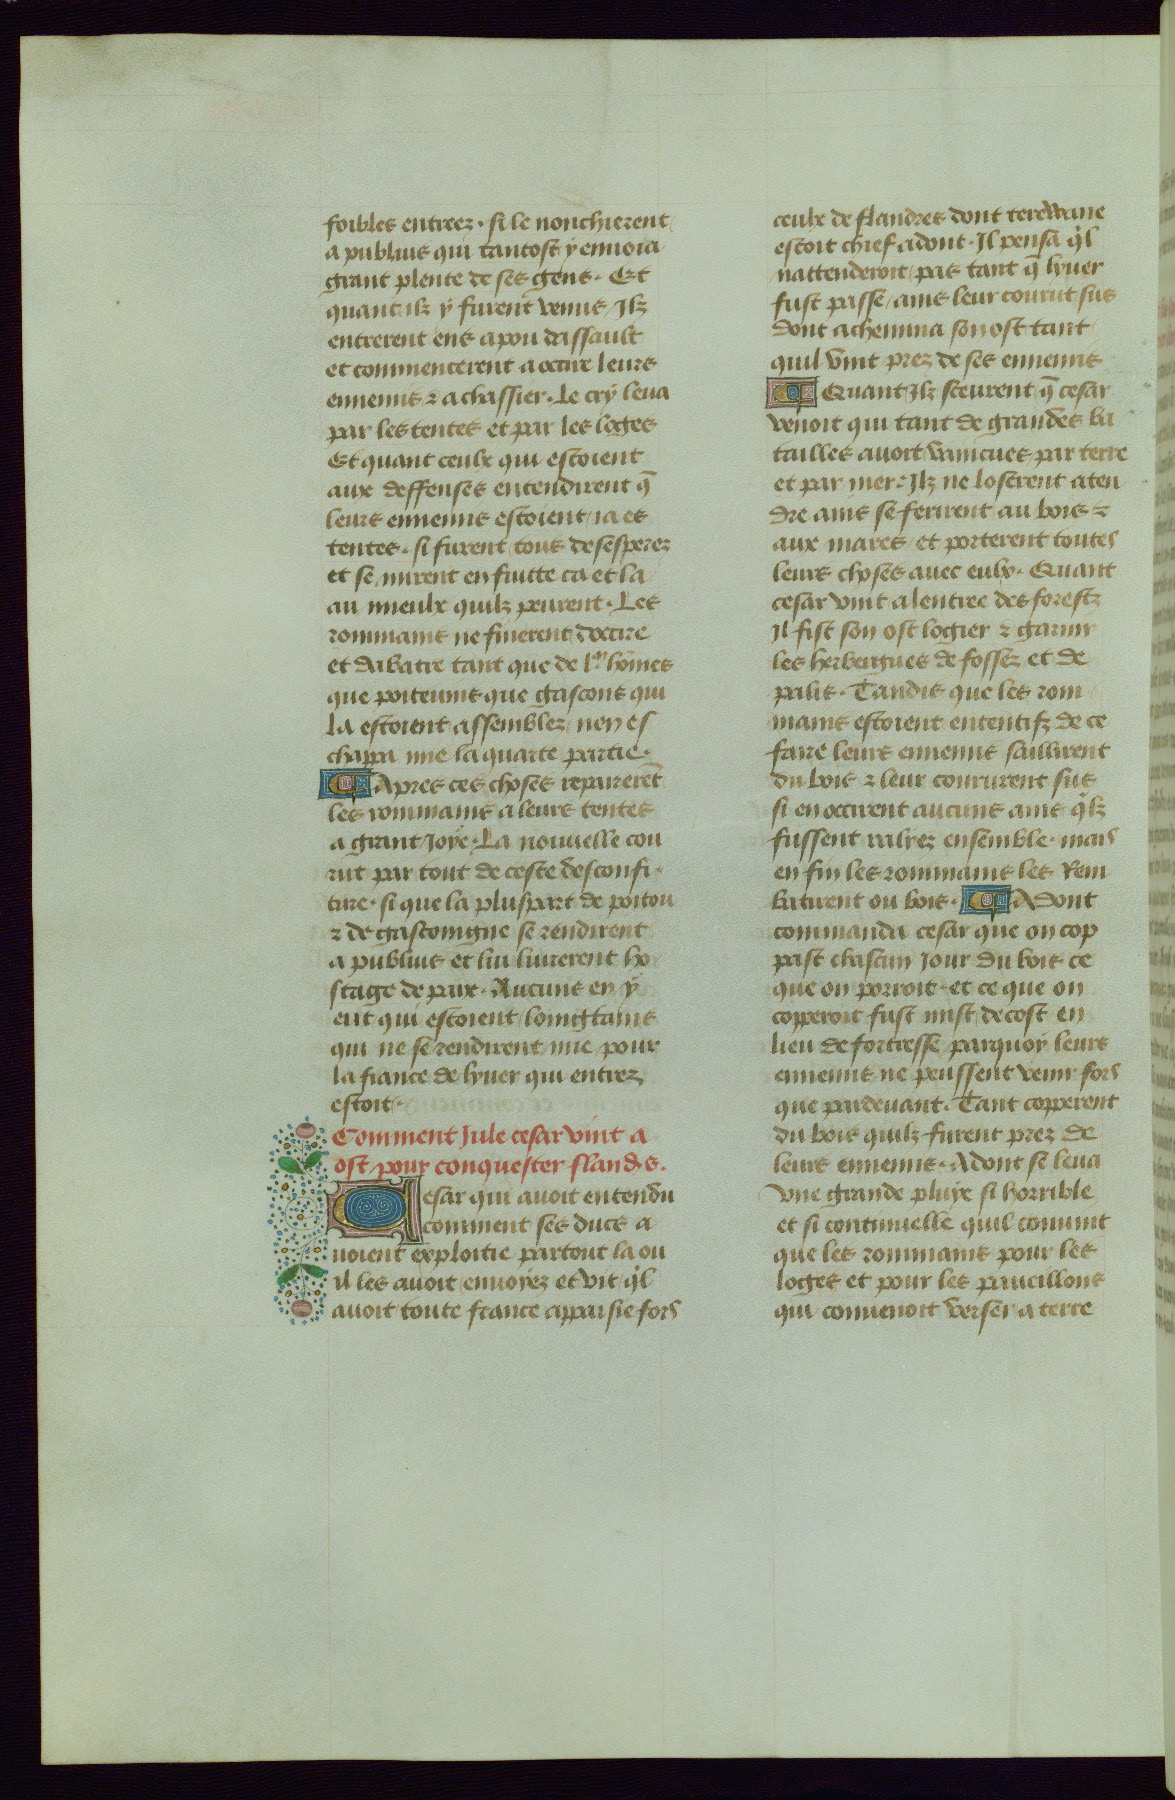 foibles entreez · si le nonchierent
a publius qui tantost y enuoia
grant plente de ses gens · Et
quant ilz y furent venus / Ilz
entrerent ens apou dassault
et commencerent a occire leurs
ennemis ⁊ a chassier · Le cry leua
par les tentes et par les loges
Et quant ceulx qui estoient
aux deffenses entendirent q̄
leurs ennemis estoient ia es
tentes · si furent tous desesperez
et se mirent en fuitte ca et la
au mieulx quilz peurent · Les
rommains ne finerent doccire
et dabatre tant que de lᵐ hōmes
que poiteuins que gascons qui
la estoient assemblez nen es
chappa mie la quarte partie ·
Apres ces choses repairerēt
les rommains a leurs tentes
a grant Joye · La nouuelle cou
rut par tout de ceste desconfi ·
ture · si que la pluspart de poitou
⁊ de gascongne se rendirent
a publius et lui liurerent ho
stage de paix · Aucuns en y
eut qui estoient loingtains
qui ne se rendirent mie pour
la fiance de lyuer qui entrez
estoit ·
Comment Jule cesar vint a
ost pour conquester flandēs .
Cesar qui auoit entendu
comment ses ducs a
uoient exploitie partout la ou
il les auoit enuoyez et vit q̄l
auoit toute france appaisie fors
ceulx de flandres dont terewane
estoit chief adont · Il pensa q̄l
nattenderoit pas tant q̄ lyuer
fust passe / ains leur courut sus
dont achemina son ost tant
quil vint prez de ses ennemis
Quant Ilz sceurent q̄ cesar
venoit qui tant de grandes ba
tailles auoit vaincues par terre
et par mer · Ilz ne loserent aten
dre ains se ferirent au bois ⁊
aux mares / et porterent toutes
leurs choses auec eulx · Quant
cesar vint a lentree des forestz
Il fist son ost logier ⁊ garnir
les herbergues de fossez et de
palis · Tandis que les rom
mains estoient ententifz de ce
faire leurs ennemis saillirent
du bois ⁊ leur coururent sus
si en occirent aucuns ains q̄lz
fussent ralyez ensemble · mais
en fin les rommains les Rem
batirent ou bois · Adont
commanda cesar que on cop
past chascun Jour du bois ce
que on porroit · et ce que on
copperoit fust mist decost en
lieu de fortresse parquoy leurs
ennemis ne peussent venir fors
que pardeuant . Tant copperent
du bois quilz furent prez de
leurs ennemis · Adont se leua
vne grande pluye si horrible
et si continuelle quil conuint
que les rommains pour les
loges et pour les paueillons
qui conuenoit verser a terre